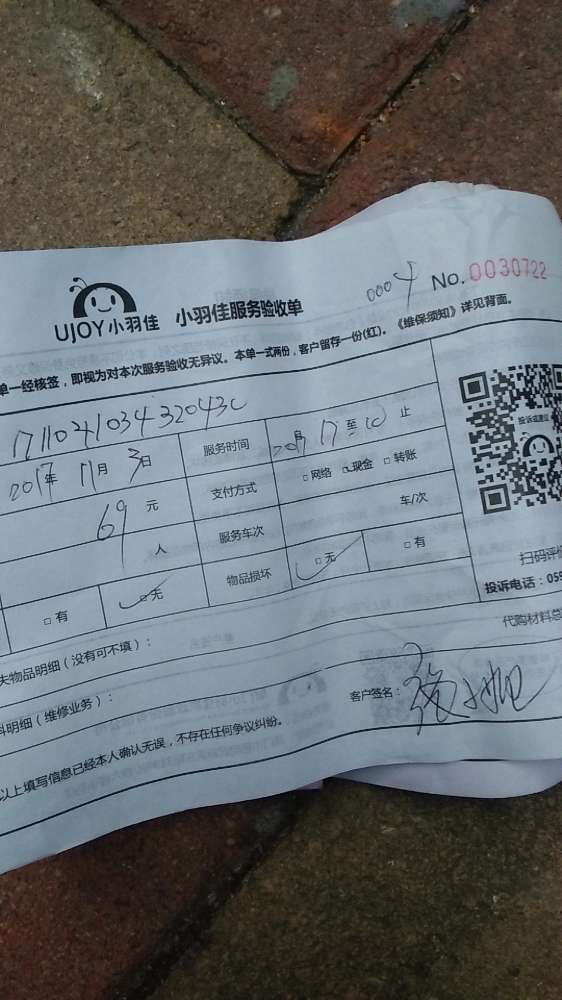 UJOY小羽佳 小羽佳服务验收单 0004 No.0030722
单一经核签，即视为对本次服务验收无异议。本单一式两份，客户留存一份(红)。《维保须知》详见背面。
服务时间 17 至 止
2017年 11月 3日 支付方式 □网络 □现金 □转账
69元 服务车次 车/次
人 物品损坏 □无 □有
□有 □无
投诉或建议
扫码评
投诉电话：05
代购材料总
失物品明细（没有可不填）：
料明细（维修业务）：
客户签名：
以上填写信息已经本人确认无误，不存在任何争议纠纷。